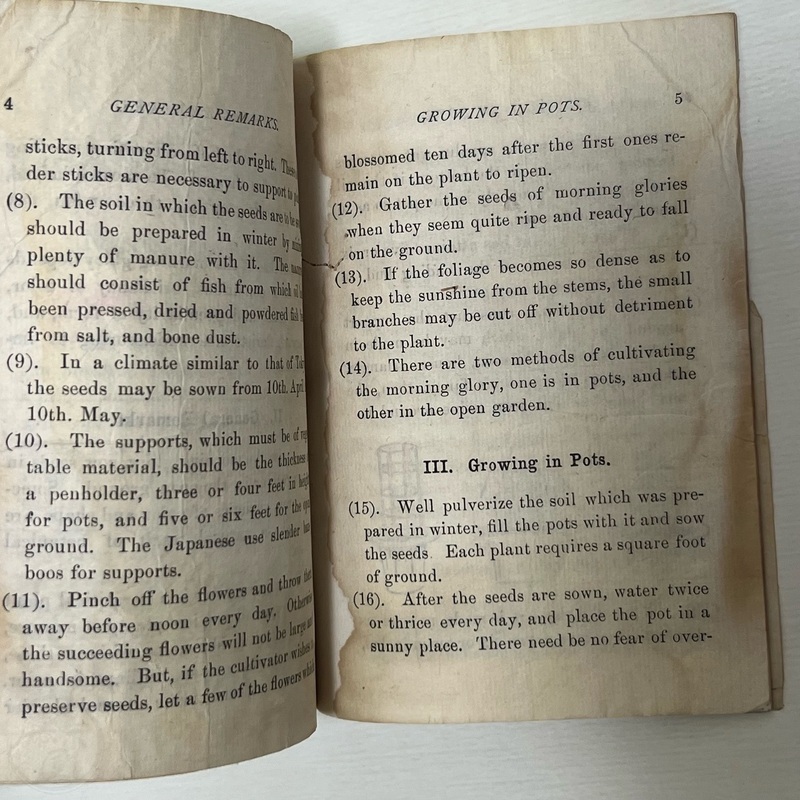 4
GENERAL REMARKS.
sticks, turning from left to right.
der sticks are necessary to support
(8). The soil in which the seeds are
should be prepared in winter by
plenty of manure with it. The
should consist of fish from which
been pressed, dried and powdered
from salt, and bone dust.
(9). In a climate similar to that of
the seeds may be sown from 10th.
10th. May.
(10). The supports, which must be of
table material, should be the thickness
a penholder, three or four feet in
for pots, and five or six feet for the
ground. The Japanese use slender
boos for supports.
(11). Pinch off the flowers and throw
away before noon every day.
the succeeding flowers will not be large
handsome. But, if the cultivator wishes
preserve seeds, let a few of the flowers
GROWING IN POTS.
5
blossomed ten days after the first ones re-
main on the plant to ripen.
(12). Gather the seeds of morning glories
when they seem quite ripe and ready to fall
on the ground.
(13). If the foliage becomes so dense as to
keep the sunshine from the stems, the small
branches may be cut off without detriment
to the plant.
(14). There are two methods of cultivating
the morning glory, one is in pots, and the
other in the open garden.
III. Growing in Pots.
(15). Well pulverize the soil which was pre-
pared in winter, fill the pots with it and sow
the seeds. Each plant requires a square foot
of ground.
(16). After the seeds are sown, water twice
or thrice every day, and place the pot in a
sunny place. There need be no fear of over-